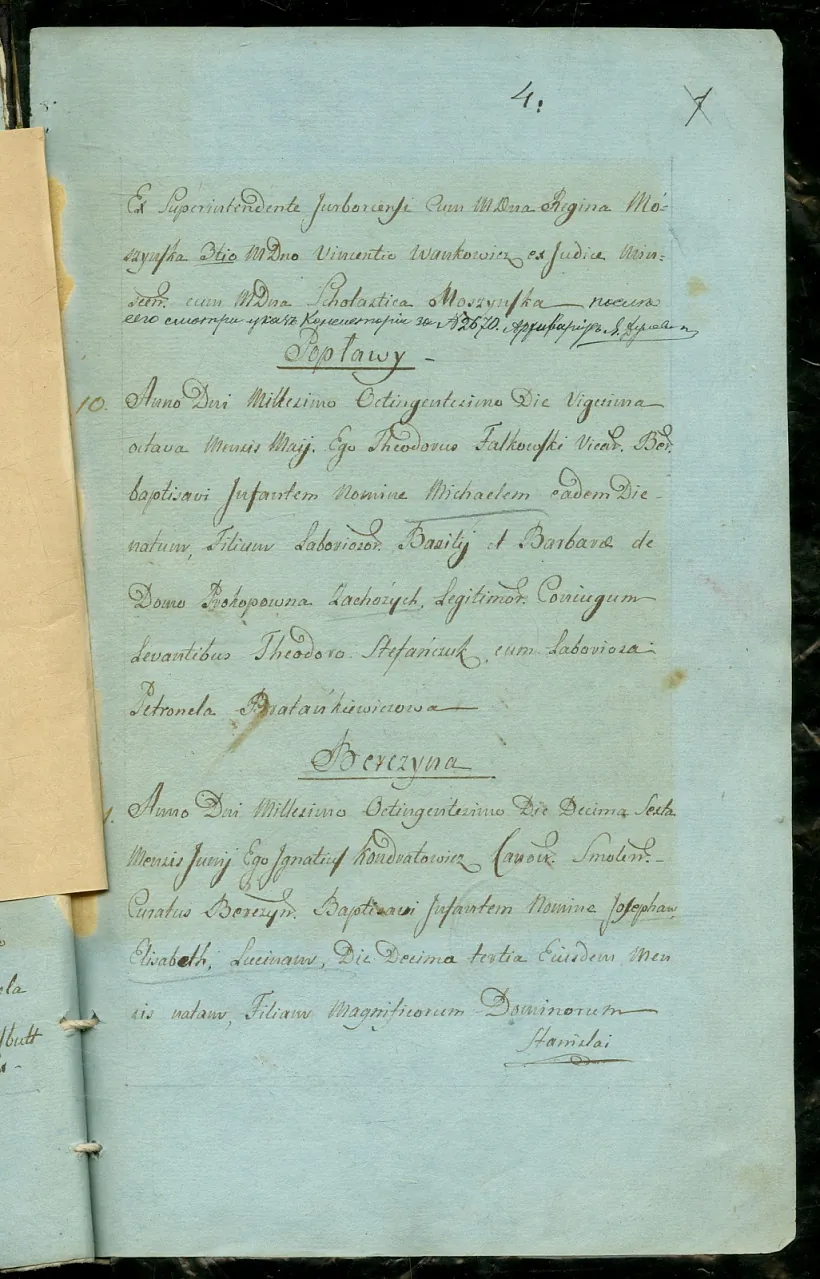 4.
1
Ex Superintendente Jurboricensi Cum MDna Regina Mo-
szynska 3tio MDno Vincentio Wankowicz ex Judice Min-
scen. cum MDna Scholastica Moszynska
его смотри указъ Консисторіи за №2670. Архиваріусъ
Popławy -
10. Anno Dni Millesimo Octingentesimo Die Vigesima
octava Mensis Maij. Ego Theodorus Falkowski Vicar. Ber.
baptisavi Infantem Nomine Michaelem eadem Die
natum, Filium Laborioror. Bazilij et Barbaræ de
Domo Prokopowna Zachożych, Legitimor. Coniugum
Levantibus Theodoro Stefańczuk, cum Laboriosa
Petronela Bratańkiewiczowa
Berezyna
Anno Dni Millesimo Octingentesimo Die Decima Sexta
Mensis Junij Ego Ignatius Kondratowicz Canon. Smolen.
Curatus Berezyn. Baptisavi Infantem Nomine Josepham
Elisabeth, Lucinam, Die Decima tertia Eiusdem Men
sis natam, Filiam Magnificorum Dominorum
Stanislai